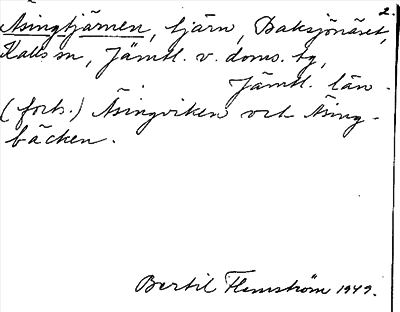 2.
Åsingtjärnen, tjärn, Baksjönäset,
Kalls sn, Jämtl. v. doms. tg,
Jämtl. län.
(forts.) Åsingviken och Åsing-
bäcken.
Bertil Flemström 1949.